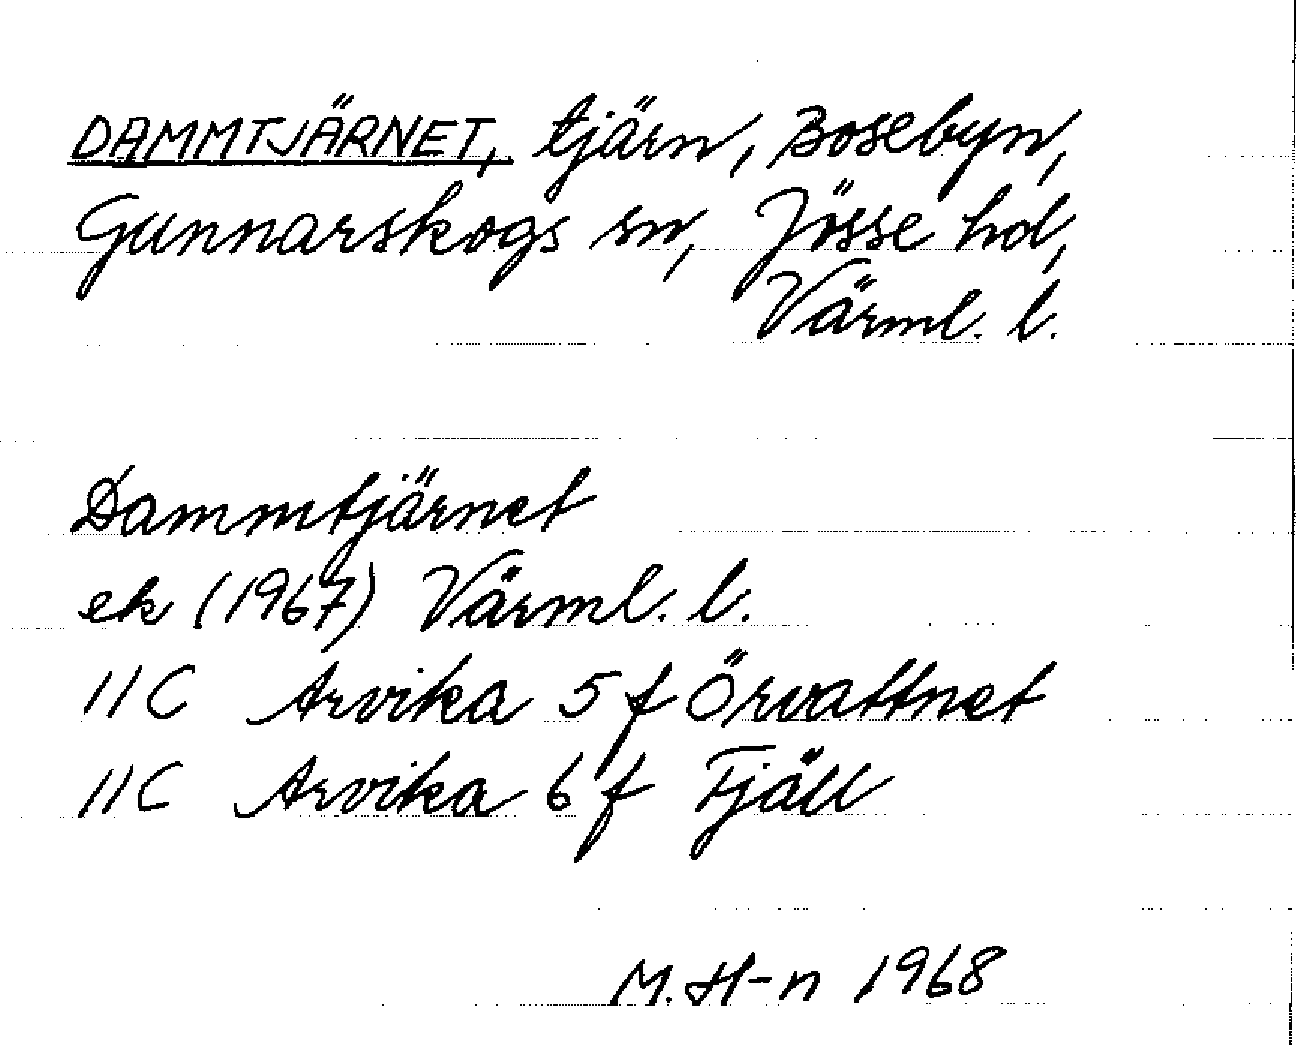 DAMMTJÄRNET, tjärn, Bosebyn,
Gunnarskogs sn, Jösse hd,
Värml. l.
Dammtjärnet
ek (1967) Värml. l.
11C Arvika 5 f Örvattnet
11C Arvika 6 f Fjäll
M. H-n 1968